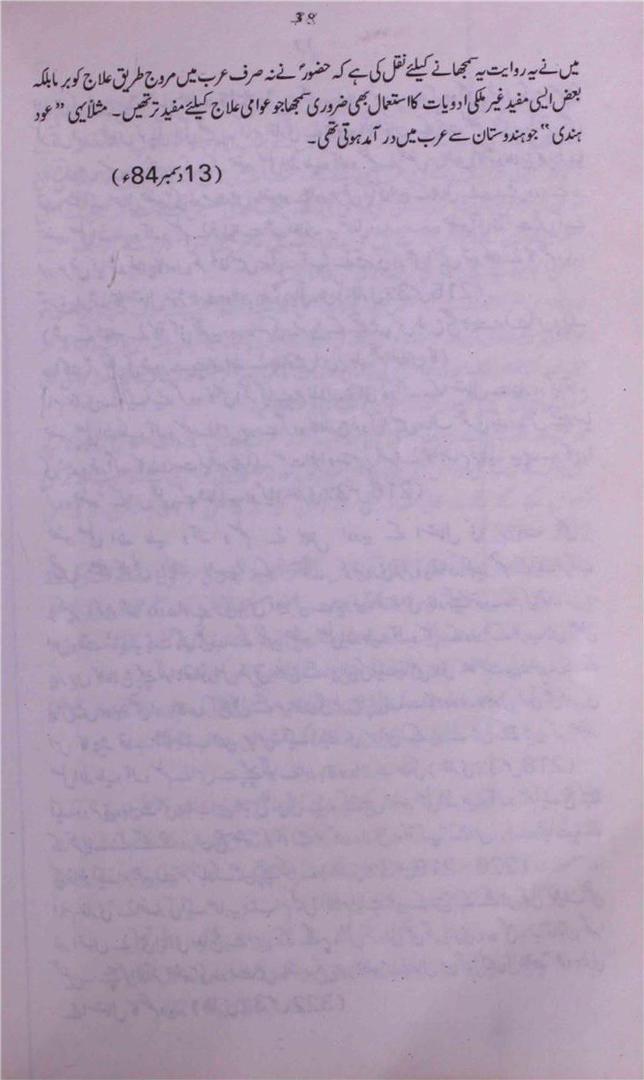 38
میں نے یہ روایت یہ سمجھانے کیلئے نقل کی ہے کہ حضورؐ نے نہ صرف عرب میں مروج طریق علاج کو برتا بلکہ
بعض ایسی مفید غیر ملکی ادویات کا استعمال بھی ضروری سمجھا جو عوامی علاج کیلئے مفید تر تھیں۔ مثلاً یہی ”عود
ہندی“ جو ہندوستان سے عرب میں درآمد ہوتی تھی۔
(13 دسمبر 84ء)